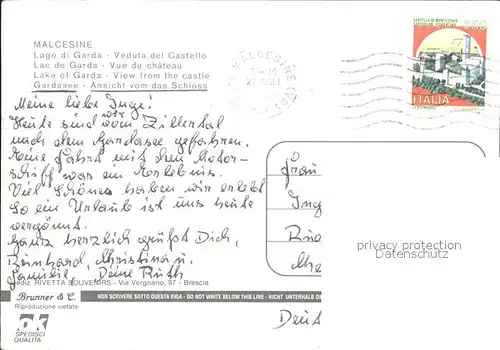 MALCESINE
Lago di Garda - Veduta del Castello
Lac de Garda - Vue du château
Lake of Garda - View from the castle
Gardasee - Ansicht vom das Schloss
MALCESINE
CASTELLO DI MONTECCHIO
CASTIGLION FIORENTINO
550
ITALIA
Meine liebe Inge!
Heute sind wir vom Zillertal
nach dem Gardasee gefahren.
Eine Fahrt mit dem Motor-
schiff war ein Erlebnis.
Viel Schönes haben wir erlebt
So ein Urlaub ist uns heute
vergönnt.
Ganz herzlich grüßt Dich,
Reinhard, Christina u.
Familie, Deine Ruth
Frau
Ing
privacy protection
Datenschutz
Deut
ediz. RIVETTA SOUVENIRS - Via Vergnano, 97 - Brescia
Brunner & C.
Riproduzione vietata
NON SCRIVERE SOTTO QUESTA RIGA - DO NOT WRITE BELOW THIS LINE - NICHT UNTERHALB DI
SPEDISCI
QUALITÀ